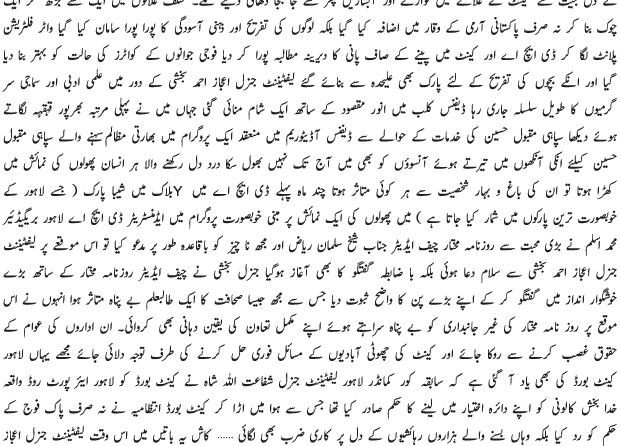 چوک بنا کر نہ صرف پاکستانی آرمی کے وقار میں اضافہ کیا گیا بلکہ لوگوں کی تفریح اور ذہنی آسودگی کا پورا پورا سامان کیا گیا واٹر فلٹریشن
پلانٹ لگا کر ڈی ایچ اے اور کینٹ میں پینے کے صاف پانی کا دیرینہ مطالبہ پورا کر دیا فوجی جوانوں کے کواٹرز کی حالت کو بہتر بنا دیا
گیا اور انکے بچوں کی تفریح کے لئے پارک بھی علیحدہ سے بنائے گئے لیفٹیننٹ جنرل اعجاز احمد بخشی کے دور میں علمی ادبی اور سماجی سر
گرمیوں کا طویل سلسلہ جاری رہا ڈیفنس کلب میں انور مقصود کے ساتھ ایک شام منائی گئی جہاں میں نے پہلی مرتبہ بھرپور قہقہہ لگاتے
ہوئے دیکھا سپاہی مقبول حسین کی خدمات کے حوالے سے ڈیفنس آڈیٹوریم میں منعقد ایک پروگرام میں بھارتی مظالم سہنے والے سپاہی مقبول
حسین کیلئے انکی آنکھوں میں تیرتے ہوئے آنسوؤں کو بھی میں آج تک نہیں بھول سکا درد دل رکھنے والا ہر انسان پھولوں کی نمائش میں
کھڑا ہوتا تو ان کی باغ و بہار شخصیت سے ہر کوئی متاثر ہوتا چند ماہ پہلے ڈی ایچ اے میں Yبلاک میں شیبا پارک ( جسے لاہور کے
خوبصورت ترین پارکوں میں شمار کیا جاتا ہے ) میں پھولوں کی ایک نمائش پر مبنی خوبصورت پروگرام میں ایڈمنسٹریٹر ڈی ایچ اے لاہور بریگیڈئیر
محمد اسلم نے بڑی محبت سے روزنامہ مختار چیف ایڈیٹر جناب شیخ سلمان ریاض اور مجھ نا چیز کو باقاعدہ طور پر مدعو کیا تو اس موقعے پر لیفٹیننٹ
جنرل اعجاز احمد بخشی سے سلام دعا ہوئی بلکہ با ضابطہ گفتگو کا بھی آغاز ہوگیا جنرل بخشی نے چیف ایڈیٹر روزنامہ مختار کے ساتھ بڑے
خوشگوار انداز میں گفتگو کر کے اپنے بڑے پن کا واضح ثبوت دیا جس سے مجھ جیسا صحافت کا ایک طالبعلم بے پناہ متاثر ہوا انہوں نے اس
موقع پر روز نامہ مختار کی غیر جانبداری کو بے پناہ سراہتے ہوئے اپنے مکمل تعاون کی یقین دہانی بھی کروائی۔ ان اداروں کی عوام کے
حقوق غصب کرنے سے روکا جائے اور کینٹ کی چھوٹی آبادیوں کے مسائل فوری حل کرنے کی طرف توجہ دلائی جائے مجھے یہاں لاہور
کینٹ بورڈ کی بھی یاد آ گئی ہے کہ سابقہ کور کمانڈر لاہور لیفٹیننٹ جنرل شفاعت اللہ شاہ نے کینٹ بورڈ کو لاہور ایئر پورٹ روڈ واقعہ
خدا بخش کالونی کو اپنے دائرہ اختیار میں لینے کا حکم صادر کیا تھا جس سے ہوا میں اڑا کر کینٹ بورڈ انتظامیہ نے نہ صرف پاک فوج کے
حکم کو رد کیا بلکہ وہاں بسنے والے ہزاروں رہائشیوں کے دل پر کاری ضرب بھی لگائی ...... کاش یہ باتیں میں اس وقت لیفٹیننٹ جنرل اعجاز